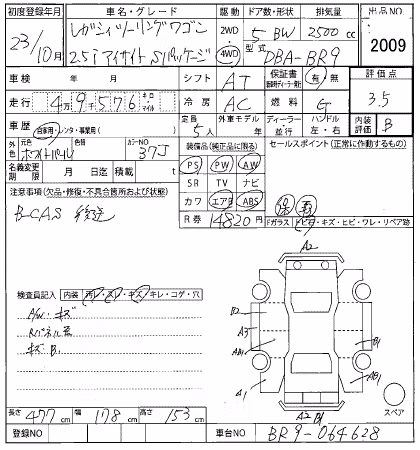 初度登録年月 車名・グレード 駆動 ドア数・形状 排気量 出品NO
23/10月 レガシィツーリングワゴン 2WD 4WD 5 BW 2500cc 2009
2.5i アイサイト Sパッケージ 型式 DBA-BR9
車検 年 月 シフト AT 保証書 有・無 評価点
走行 4万9千576 キロ マイル 冷房 AC 燃料 G 3.5
車歴 自家用・レンタ・事業用( ) 定員 5人 外車モデル 年 ディーラー 並行 ハンドル 左・右 内装評価 B
外色 元色 ホワイトパール 色替 カラーNO 37J 装備品(純正品に限る) セールスポイント(正常に作動するもの)
名義変更期限 月 日迄 積載 t PS PW AW
SR TV ナビ
注意事項(欠品・修復・不具合箇所および状態) カワ エアB ABS
B-CAS 後送 R券 14820円 Fガラス ヒビ・キズ・ヒビ・ワレ・リペア跡
A2
検査員記入 内装 汚レ・スレ・キズ・キレ・コゲ・穴
A/W キズ
Rパネル
キズ B1
A3
AB1 B1
A1 AB1
A2 B1
スペア
長さ 477cm 幅 178cm 高さ 153cm
登録NO 車台NO BR9-064628